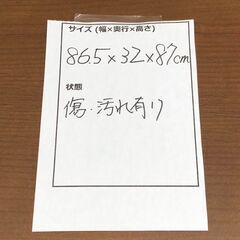 サイズ (幅×奥行×高さ)
86.5×32×87cm
状態
傷・汚れ有り